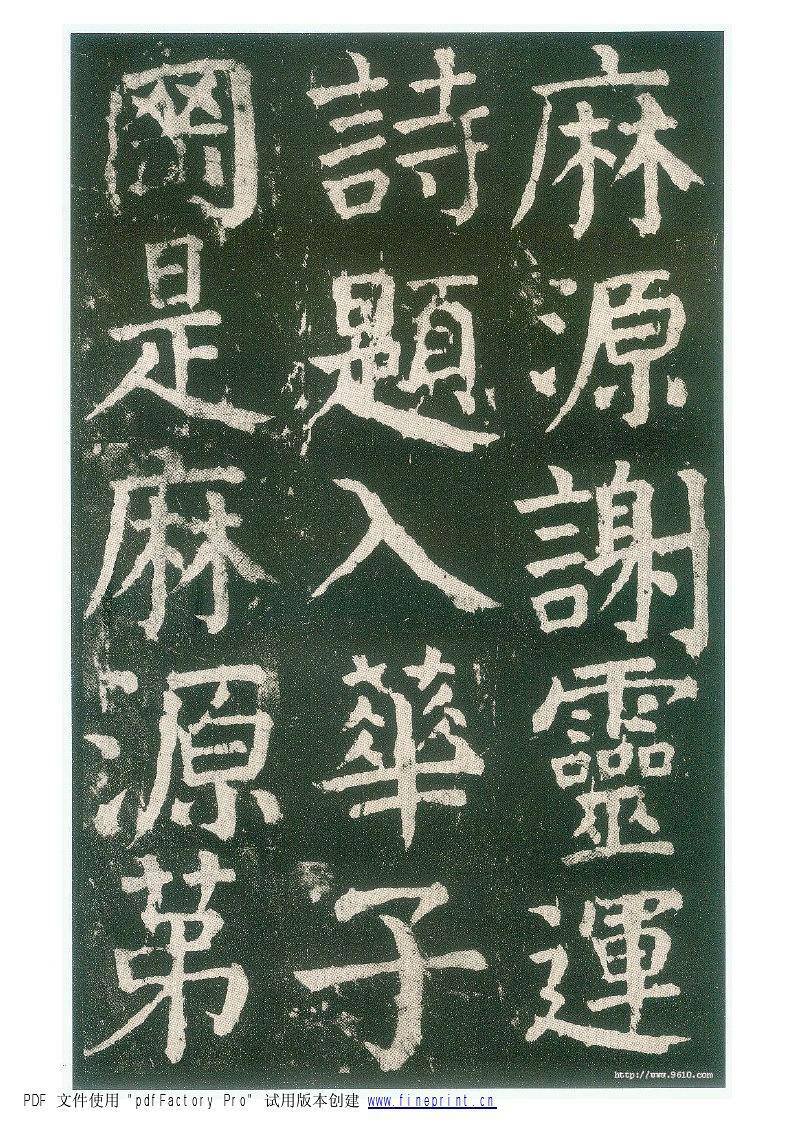 麻源謝靈運
詩題入華子
岡是麻源苐
http://www.9610.com
PDF 文件使用 "pdfFactory Pro" 试用版本创建 www.fineprint.cn